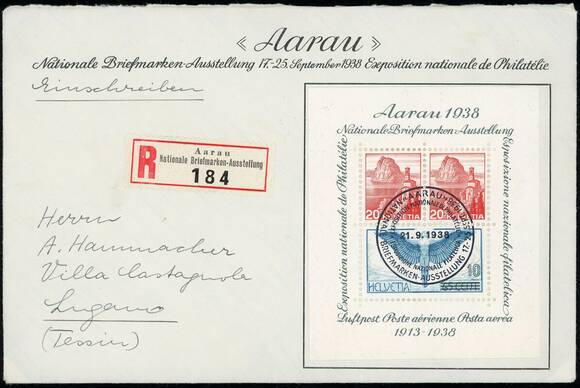 « Aarau »
Nationale Briefmarken-Ausstellung 17.-25. September 1938 Exposition nationale de Philatélie
Einschreiben
R
Aarau
Nationale Briefmarken-Ausstellung
184
Herrn
A. Hammacher
Villa Castagnole
Lugano
(Tessin)
Aarau 1938
Nationale Briefmarken-Ausstellung
Exposition nationale de Philatélie
Esposizione nazionale filatelica
20 HELVETIA
20 HELVETIA
AARAU
21.9.1938
BRIEFMARKEN-AUSSTELLUNG 17.-25.
HELVETIA
10
65 CENT.
Luftpost Poste aérienne Posta aerea
1913-1938